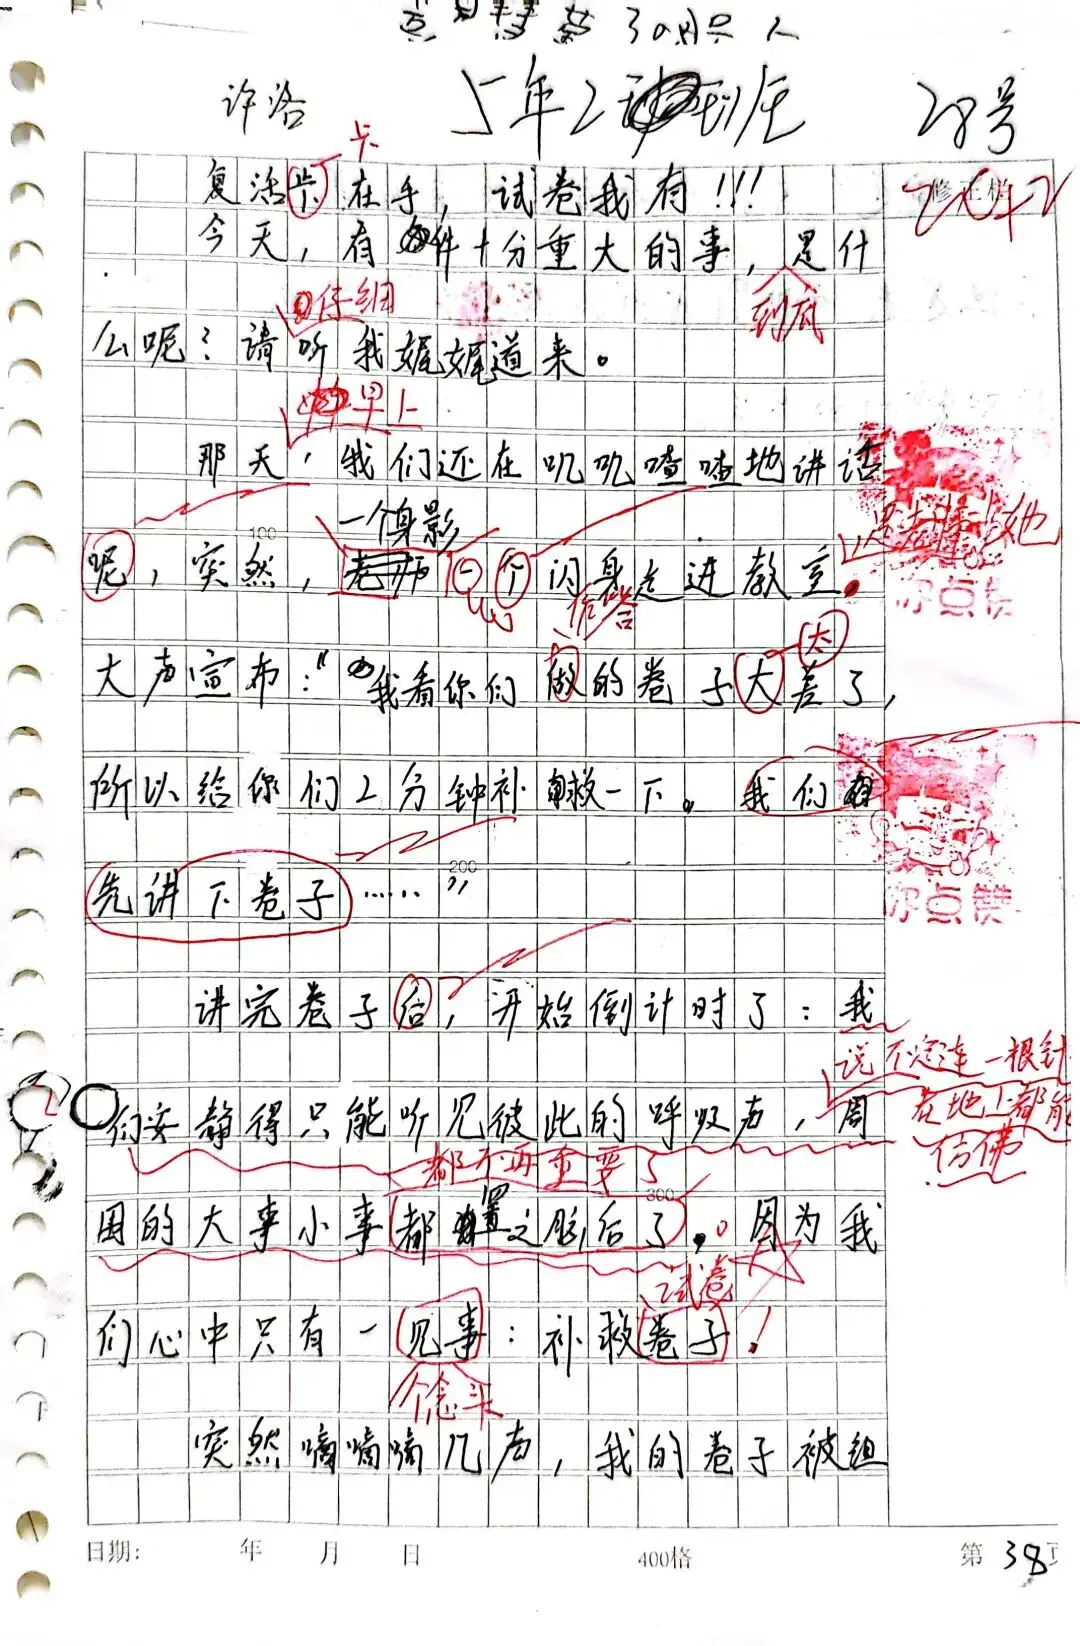 许洛 5年2班 28号
卡
复活卡在手，试卷我有!!!
修正栏
今天，有件十分重大的事，是什
仔细
到底
么呢？请听我娓娓道来。
早上
那天，我们还在叽叽喳喳地讲话
一个身影
100
呢，突然，老师一个闪身走进教室。
大声宣布："我看你们做的卷子大差了，
太
所以给你们2分钟补救一下。我们
你点赞
200
先讲下卷子……"
你点赞
讲完卷子后，开始倒计时了：我
说不定连一根针
们安静得只能听见彼此的呼吸声，周
在地上都能
都不再重要了
仿佛
300
围的大事小事都置之脑后了。因为我
试卷
们心中只有一见事：补救卷子！
个念头
突然嘀嘀嘀几声，我的卷子被组
日期： 年 月 日 400格 第 38 页